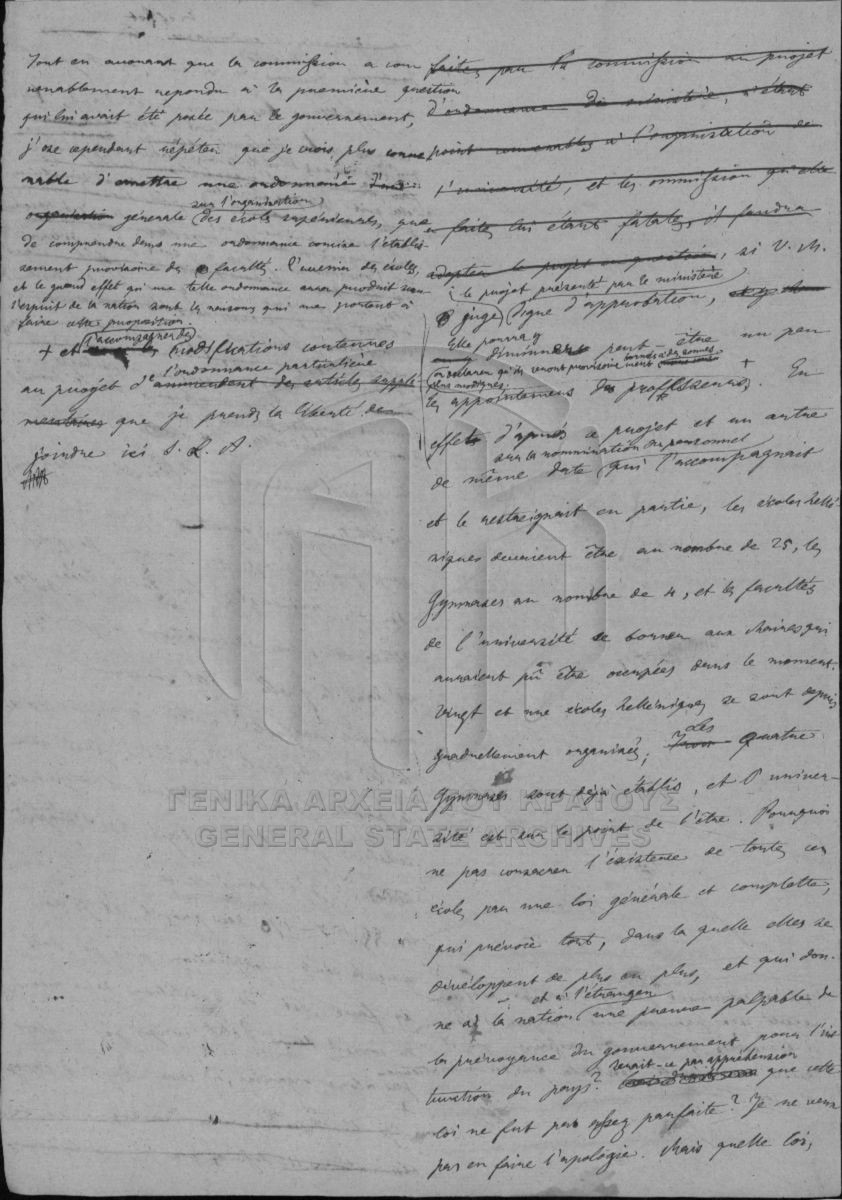 Tout en avouant que la commission a con
venablement repondu à la premiere question
qui lui avait été posée par le gouvernement,
j'ose cependant répéter que je crois plus conve
nable d'emettre une ordonnance
sur l'organisation
organisation générale des écoles supérieures, que
de comprendre dans une ordonnance concise l'établis
sement provisoire des facultés. L'avenir des écoles,
et le grand effet qu'une telle ordonnance aura produit sur
l'esprit de la nation sont les raisons qui me portent à
faire cette proposition
+ et l'accompagner des modifications contenues
l'ordonnance particulière
au projet d' amendement des articles supplé
mentaires que je prends la liberté de
joindre ici S. L. A.
faites par la commission au projet
d'ordonnance du ministère, n'étant
point convenables à l'organisation de
l'université, et les ommission qu'elle
a faites lui étant fatales, il faudra
adopter le projet en question, si V. M.
le projet présenté par le ministère
juge digne d'approbation,
Elle pourra
diminuer peut-être un peu
plus modiques
les appointemens des professeurs. + En
effet d'après ce projet et un autre
sur la nommination du personnel
de même date qui l'accompagnait
et le restreignait en partie, les écoles hellé
niques devaient être au nombre de 25, les
Gymnases au nombre de 4, et les facultés
de l'université se borner aux chaires qui
auraient pû être occupées dans le moment.
Vingt et une écoles helléniques se sont depuis
graduellement organisés;
Les
Trois Quatre
Gymnases sont déjà établis, et l'univer-
sité est sur le point de l'être. Pourquoi
ne pas consacrer l'éxistence de toutes ces
écoles par une loi générale et complette,
qui prévoie tout, dans la quelle elles se
développent de plus en plus, et qui don-
et à l'étranger
ne à la nation une preuve palpable de
la prévoyance du gouvernement pour l'ins
truction du pays?
Serait-ce par appréhension
que cette
loi ne fut pas assez parfaite? Je ne veux
pas en faire l'apologie. Mais quelle loi,
ΓΕΝΙΚΑ ΑΡΧΕΙΑ ΤΟΥ ΚΡΑΤΟΥΣ
GENERAL STATE ARCHIVES